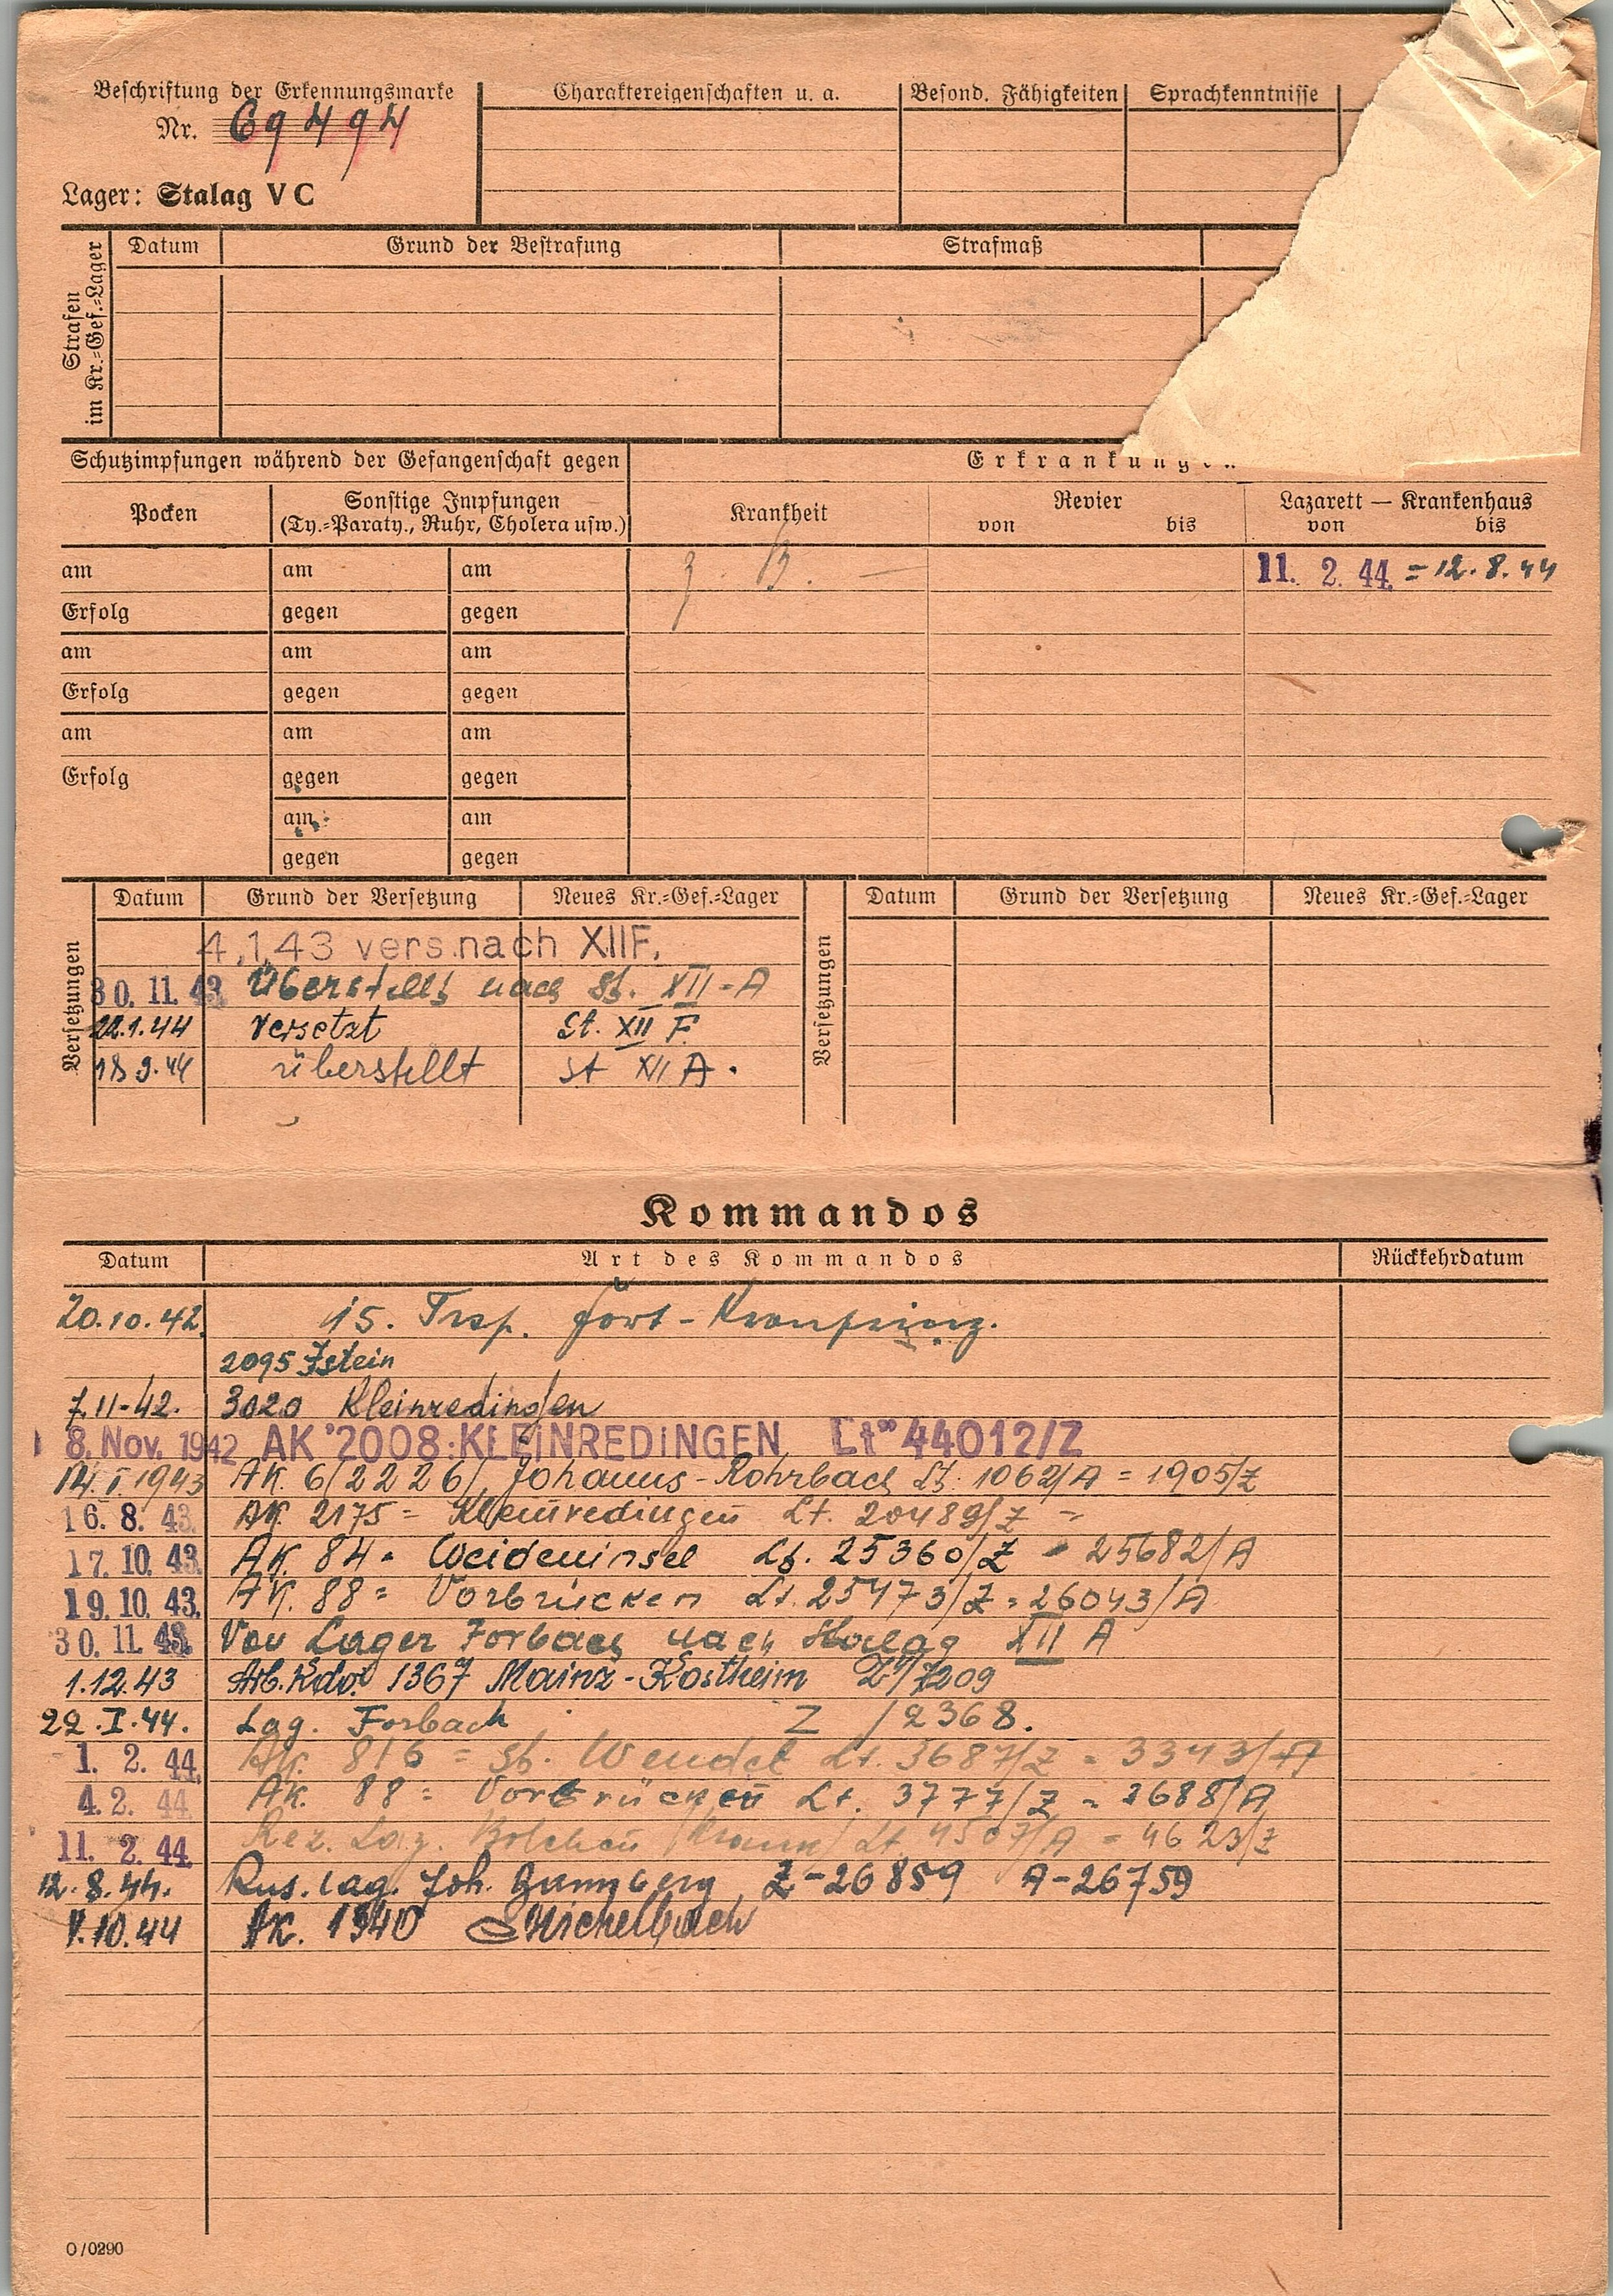 Beschriftung der Erkennungsmarke
Nr. 69494
Lager: Stalag V C
Charaktereigenschaften u. a.
Besond. Fähigkeiten
Sprachkenntnisse
Strafen im Kr.=Gef.=Lager
Datum Grund der Bestrafung Strafmaß
Schutzimpfungen während der Gefangenschaft gegen
Erkrankungen
Pocken
Sonstige Impfungen
(Ty.=Paraty., Ruhr, Cholera usw.)
Krankheit
Revier
von bis
Lazarett — Krankenhaus
von bis
am am am 11. 2. 44. = 12. 8. 44
Erfolg gegen gegen
am am am
Erfolg gegen gegen
am am am
Erfolg gegen gegen
am am
gegen gegen
Versetzungen
Datum Grund der Versetzung Neues Kr.=Gef.=Lager
4.1.43 vers.nach XIIF.
30. 11. 43. Überstellt nach St. XII-A
22.1.44 versetzt St. XII F
18 9.44 überstellt St XII A.
Versetzungen
Datum Grund der Versetzung Neues Kr.=Gef.=Lager
Kommandos
Datum Art des Kommandos Rückkehrdatum
20.10.42. 15. Trsp. Fort-Kronprinz.
2095 Istein
7.11-42. 3020 Kleinredingen
8. Nov. 1942 AK 2008 KLEINREDINGEN Lt" 44012/Z
14.I.1943 AK. 6/2226/, Johanns-Rohrbach Lt. 1062/A = 1905/Z
16. 8. 43. AK. 2175 = Kleinredingen Lt. 20489/Z =
17. 10. 43. AK. 84 = Weideninsel Lt. 25360/Z = 25682/A
19. 10. 43. AK. 88 = Vorbrücken Lt. 25473/Z = 26043/A
30. 11. 43. Von Lager Forbach nach Stalag XII A
1.12.43 Arb.Kdo. 1367 Mainz-Kostheim Z/7209
22.I.44. Lag. Forbach Z /2368.
1. 2. 44. AK. 816 = St. Wendel Lt. 3687/Z = 3343/A
4. 2. 44. AK. 88 = Vorbrücken Lt. 3777/Z = 2688/A
11. 2. 44. Res. Laz. Bolchen Lt. 4507/A = 4623/Z
12. 8. 44. Rus. lag. Joh. Bannberg Z-26859 A-26759
10.44 AK. 1340 Michelbach
O/0290